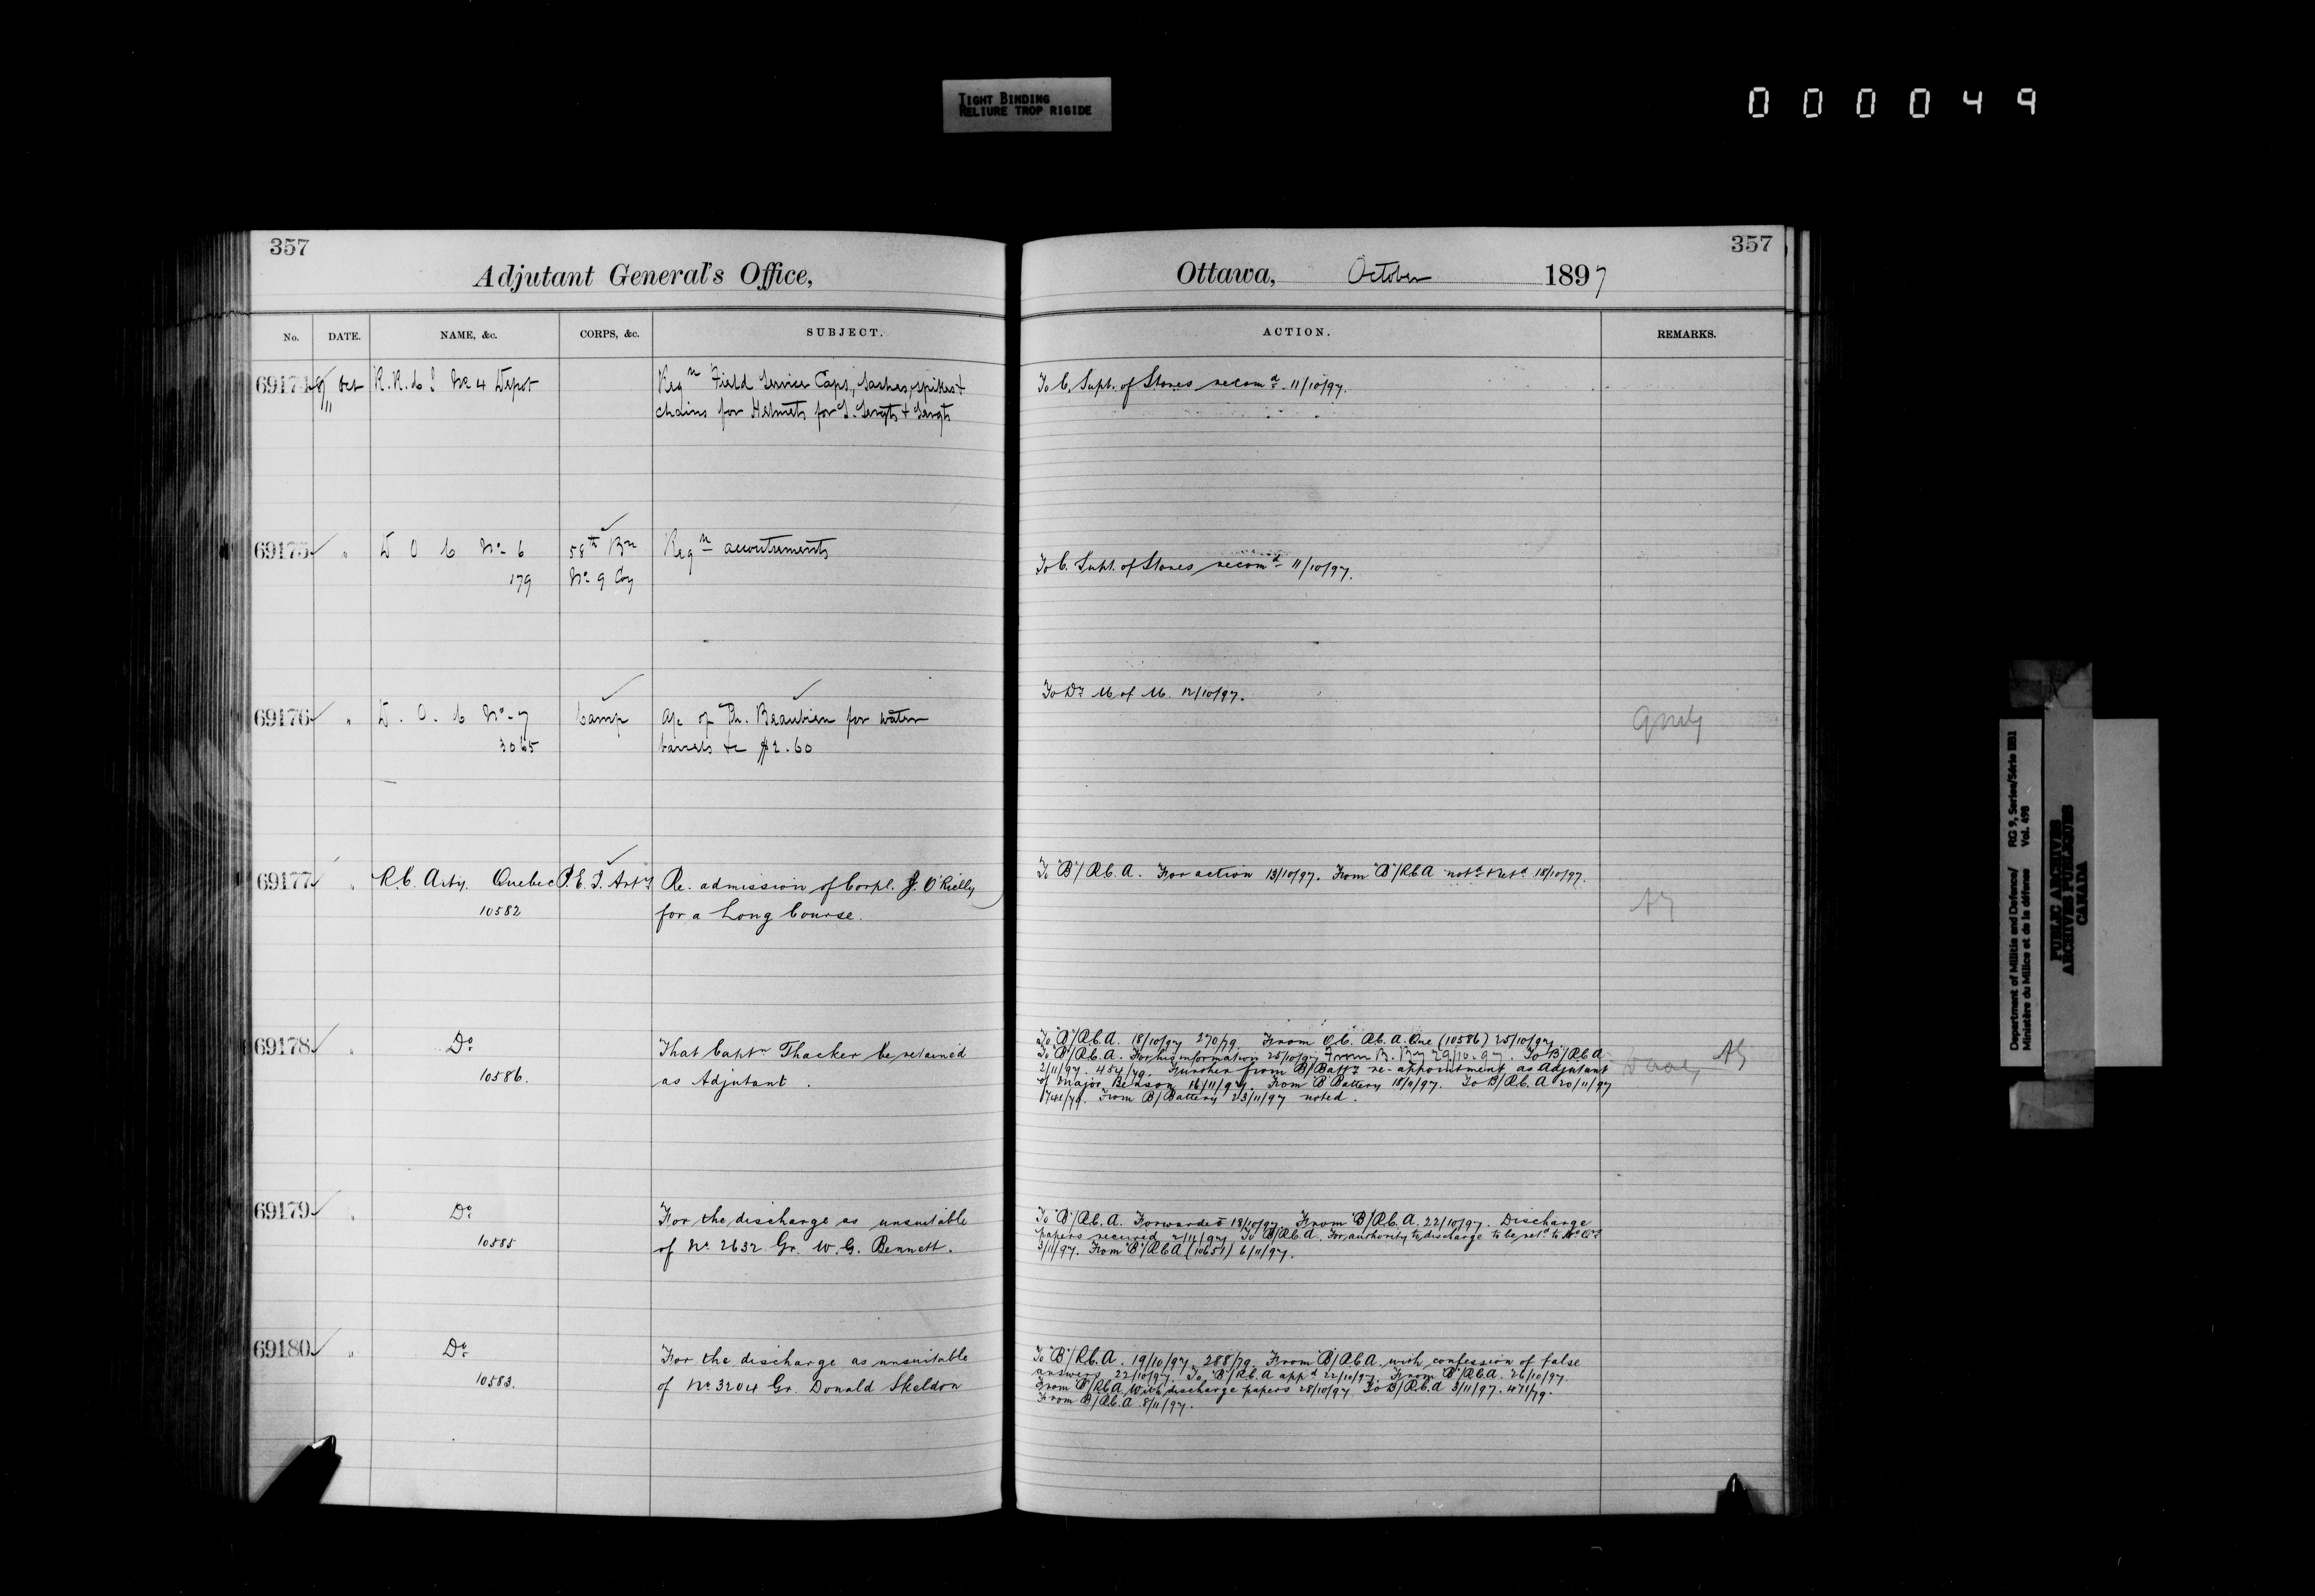 TIGHT BINDING
RELIURE TROP RIGIDE
000049
357
Adjutant General's Office,
No. DATE. NAME, &c. CORPS, &c. SUBJECT.
69174 9/11 Oct R.R.C I No 4 Depot Reqn Field Service Caps, Sashes, spikes &
chains for Helmets for S. Sergts & Sergts
69175 " D O C No 6 58th Bn Reqn accoutrements
179 No 9 Coy
69176 " D.O.C No 7 Camp a/c of Beaubien for water
3065 barrels &c $2.60
69177 " R.C. Arty. Quebec P.E.I. Arty Re. admission of Corpl. J. O'Rielly
10582 for a Long Course.
69178 " Do That Captn Thacker be retained
10586. as Adjutant.
69179 " Do For the discharge as unsuitable
10585 of No 2632 Gr. W. G. Bennett.
69180 " Do For the discharge as unsuitable
10583. of No 3204 Gr. Donald Skeldon
357
Ottawa, October 1897
ACTION. REMARKS.
To C. Supt. of Stores recomd 11/10/97.
To C. Supt. of Stores recomd 11/10/97.
To Dy M of M. 12/10/97.
To "B"/R.C.A. For action 13/10/97. From "B"/RCA notd & retd 18/10/97.
To "B"/R.C.A. 18/10/97 270/79. From O.C. R.C.A. Que (10586) 25/10/97.
To "B"/R.C.A. For his information 25/10/97 From 29/10.97. To "B"/R.C.A AG
2/11/97. 454/79. Further from B/Batty re-appointment as Adjutant
of Major Benson 16/11/97. From "B" Battery 18/11/97. To B/R.C.A 20/11/97
741/79. From B/Battery 23/11/97 noted.
To "B"/R.C.A. Forwarded 18/10/97. From "B"/R.C.A. 22/10/97. Discharge
papers received 2/11/97 To "B"/R.C.A. For authority to discharge to be retd to
3/11/97. From "B"/R.C.A (10651) 6/11/97.
To "B"/R.C.A. 19/10/97. 288/79. From "B"/R.C.A. with confession of false
answers 22/10/97. To "B"/R.C.A appd 22/10/97. From "B"/R.C.A. 26/10/97.
From "B"/R.C.A. With discharge papers 28/10/97 To B/R.C.A 3/11/97. 471/79.
From B/R.C.A 8/11/97.
Department of Militia and Defence/ RG 9, Series/Série IIB1
Ministère du Milice et de la défense Vol. 498
PUBLIC ARCHIVES
ARCHIVES PUBLIQUES
CANADA